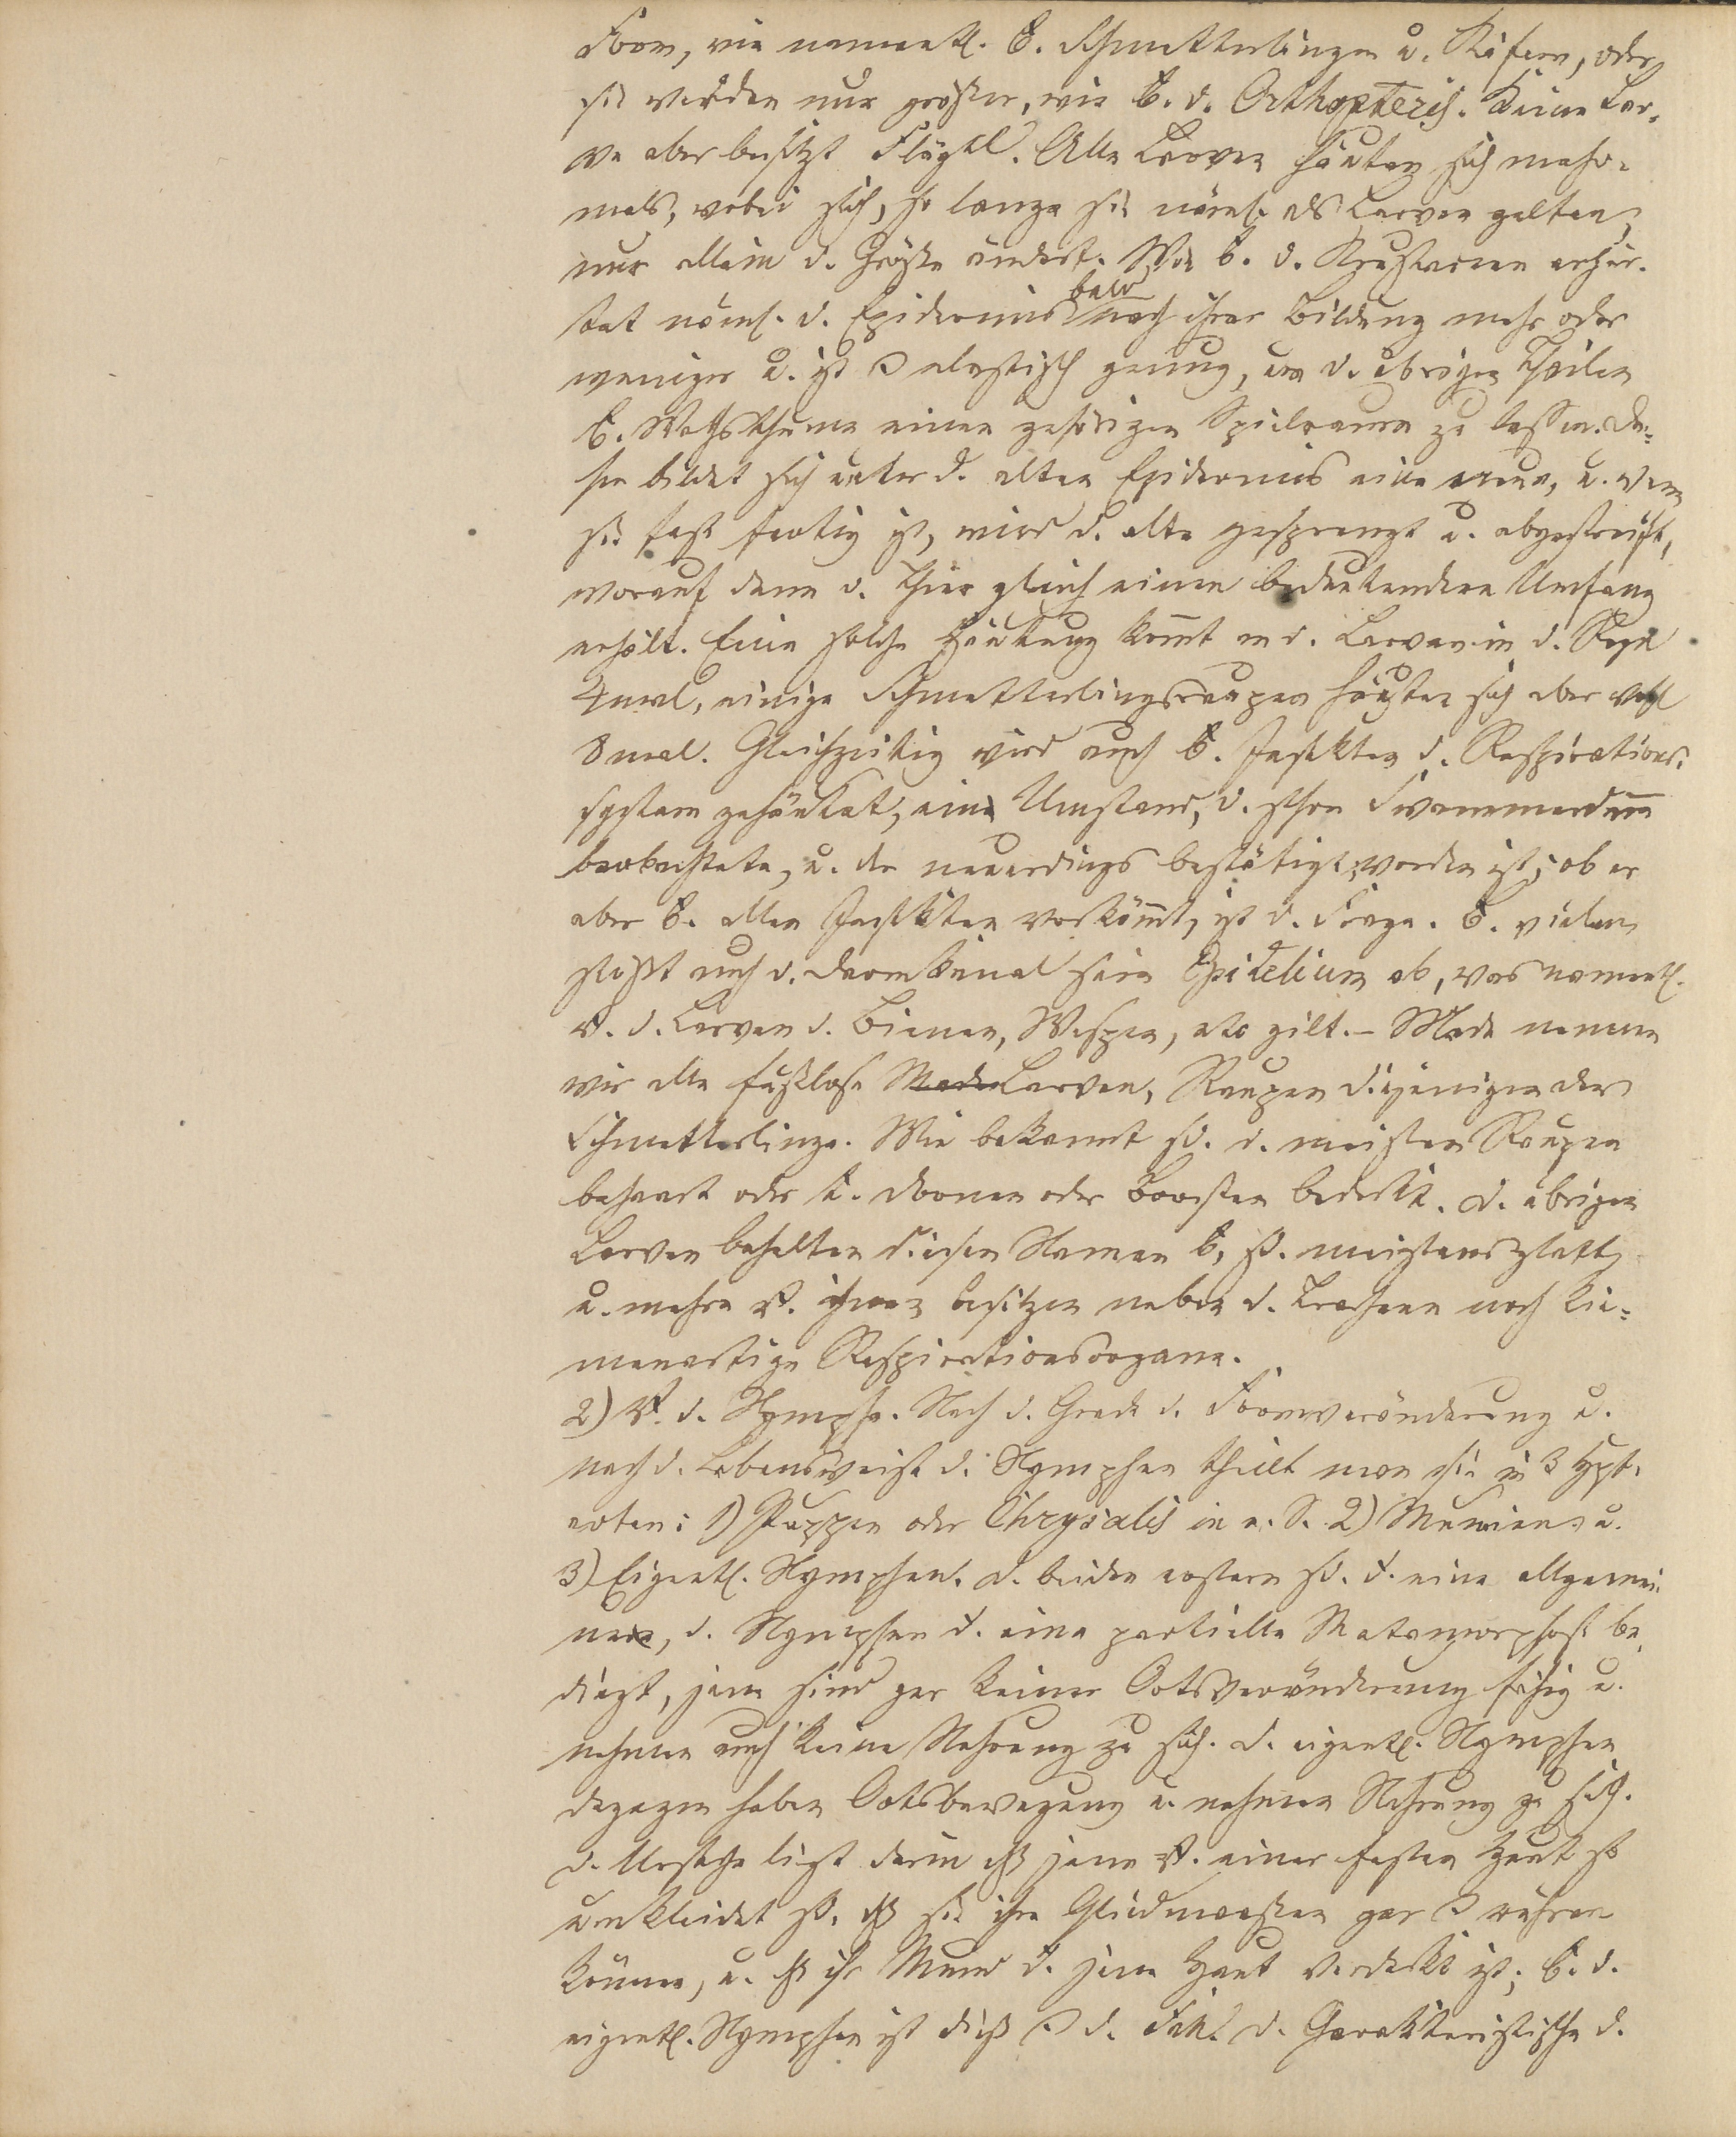 Form, wie namentl. b. Schmetterlingen u. Käfern, oder
sie werden nur größer, wie b. d. Orthopteris. Keine Lar-
ve aber besitzt Flügel. Alle Larven häuten sich mehr-
mals, wobei sich, so lange sie näml. als Larven gelten,
nur allein d. Größe ändert. Wie b. d. Krustaceen erhär-
tet näml. d. Epidermis bald nach ihrer Bildung mehr oder
weniger u. ist elastisch genug, um d. übrigen Theilen
b. Wachsthume einen gehörigen Spielraum zu lassen. Da-
her bildet sich unter d. alten Epidermis eine neue, u. wenn
sie fast fertig ist, wird d. alte gesprengt u. abgestreift,
worauf dann d. Thier gleich einen bedeutendern Umfang
erhält. Eine solche Häutung kömt an d. Larven in d. Regel
4mal, einige Schmetterlingsraupen häuten sich aber wohl
8mal. Gleichzeitig wird auch b. Insekten d. Respirations-
system gehäutet, ein Umstand, d. schon Swammerdam
beobachtete, u. der neuerdings bestätigt worden ist; ob er
aber b. allen Insekten vorkömt, ist d. Frage. B. vielen
stößt auch d. Darmkanal sein Epitelium ab, was namentl.
v. d. Larven d. Bienen, Wespen, etc gilt. – Made nennen
wir alle fußlose Larven, Raupen diejenigen der
Schmetterlinge. Wie bekannt sd. d. meisten Raupen
behaart oder m. Dornen oder Borsten bedeckt. D. übrigen
Larven behalten diesen Namen b, sd. meistens glatt
u. mehre v. ihnen besitzen neben d. Tracheen noch kie-
menartige Respirationsorgane.
2) V. d. Nymphe. Nach d. Grade d. Formveränderung u.
nach d. Lebensweise d. Nymphen theilt man sie in 3 Hpt-
arten: 1) Puppen oder Chrysalis in e. S. 2) Mumien u.
3) Eigentl. Nymphen. D. beiden erstern sd. d. eine allgemei-
nere, d. Nymphen d. eine partielle Metamorphose be-
dingt, jene sind gar keiner Ortsveränderung fähig u.
nehmen auch keine Nahrung zu sich. D. eigentl. Nymphen
dagegen haben Ortsbewegung u. nehmen Nahrung zu sich.
D. Ursache liegt darin dß jene v. einer festen Haut so
umkleidet sd. dß sie ihre Gliedmaßen gar rühren
können, u. dß ihr Mund d. jene Haut verdeckt ist; b. d.
eigentl. Nymphen ist dieß d. Fall. D. Charakteristische d.